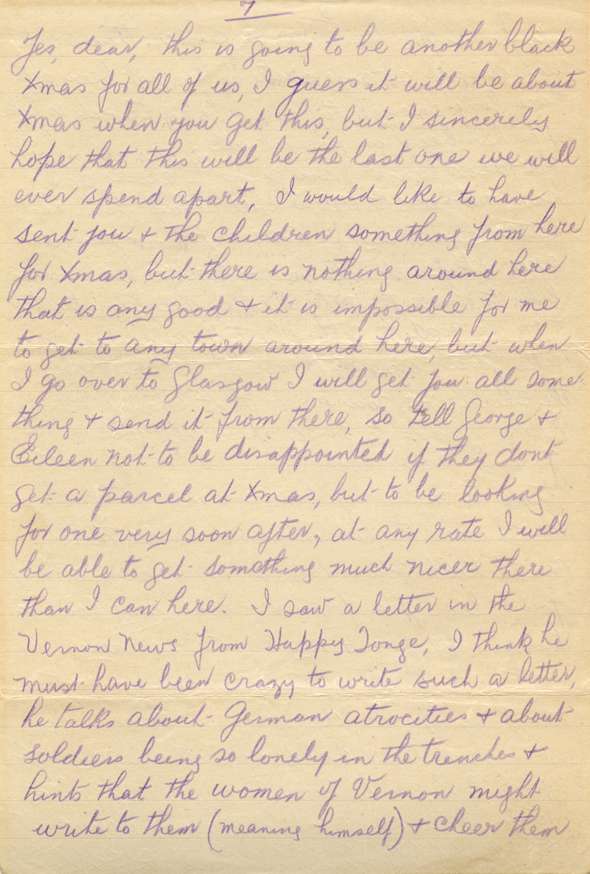 7
Yes, dear, this is going to be another black
Xmas for all of us, I guess it will be about
Xmas when you get this, but I sincerely
hope that this will be the last one we will
ever spend apart, I would like to have
sent you + the children something from here
for Xmas, but there is nothing around here
that is any good + it is impossible for me
to get to any town around here, but when
I go over to Glasgow I will get you all some
thing + send it from there, so tell George +
Eileen not to be disappointed if they dont
get a parcel at Xmas, but to be looking
for one very soon after, at any rate I will
be able to get something much nicer there
than I can here. I saw a letter in the
Vernon News from Happy Tonge, I think he
must have been crazy to write such a letter,
he talks about German atrocities + about
soldiers being so lonely in the trenches +
hints that the women of Vernon might
write to them (meaning himself) + cheer them